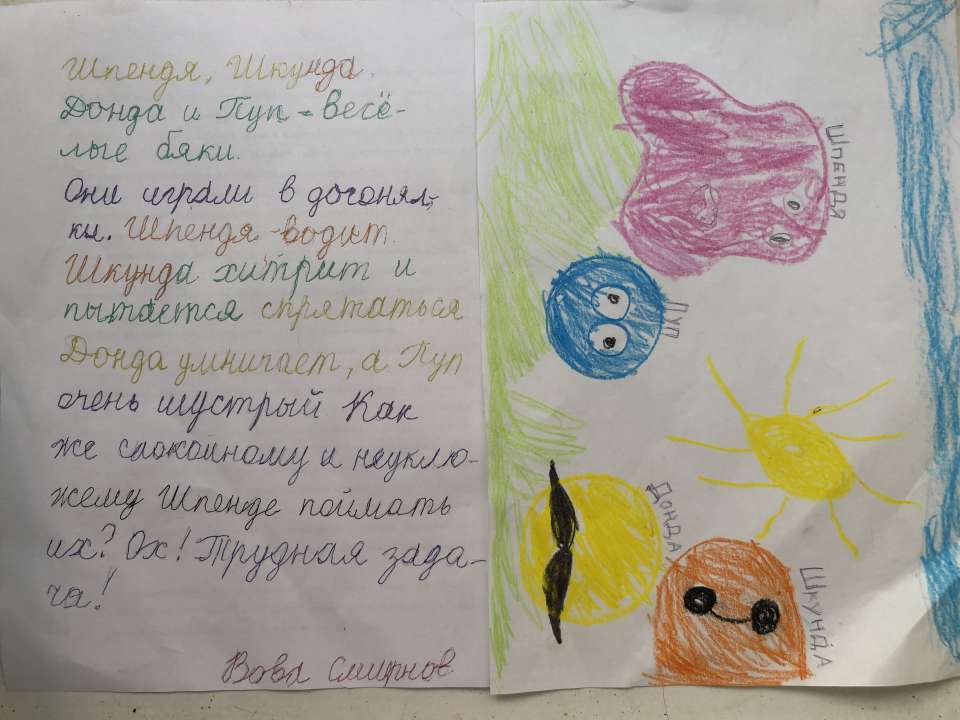 Шпендя, Шкунда.
Донда и Пуп - весё-
лые бяки.
Они играли в догонял-
ки. Шпендя водит.
Шкунда хитрит и
пытается спрятаться
Донда умничает, а Пуп
очень шустрый Как
же спокойному и неуклю-
жему Шпенде поймать
их? Ох! Трудная зада-
ча!
Вова Смирнов
ШПЕНДЯ
ПУП
ДОНДА
ШКУНДА